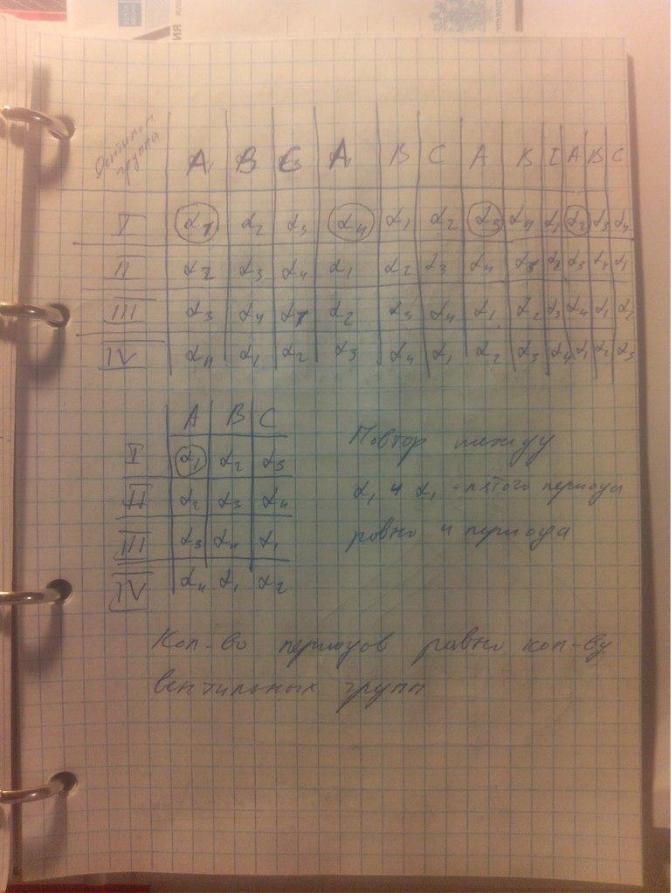 RN
группы
A B C A B C A B C A B C
I α1 α2 α3 α4 α1 α2 α3 α4 α1 α2 α3 α4
II α2 α3 α4 α1 α2 α3 α4 α3 α2 α3 α4 α1
III α3 α4 α1 α2 α3 α4 α1 α2 α3 α4 α1 α2
IV α4 α1 α2 α3 α4 α1 α2 α3 α4 α1 α2 α3
A B C
I α1 α2 α3
II α2 α3 α4
III α3 α4 α1
IV α4 α1 α2
Повтор между
α1 и α1 - пятого периода
равно 4 периода
Кол-во периодов равно кол-ву
вентильных групп